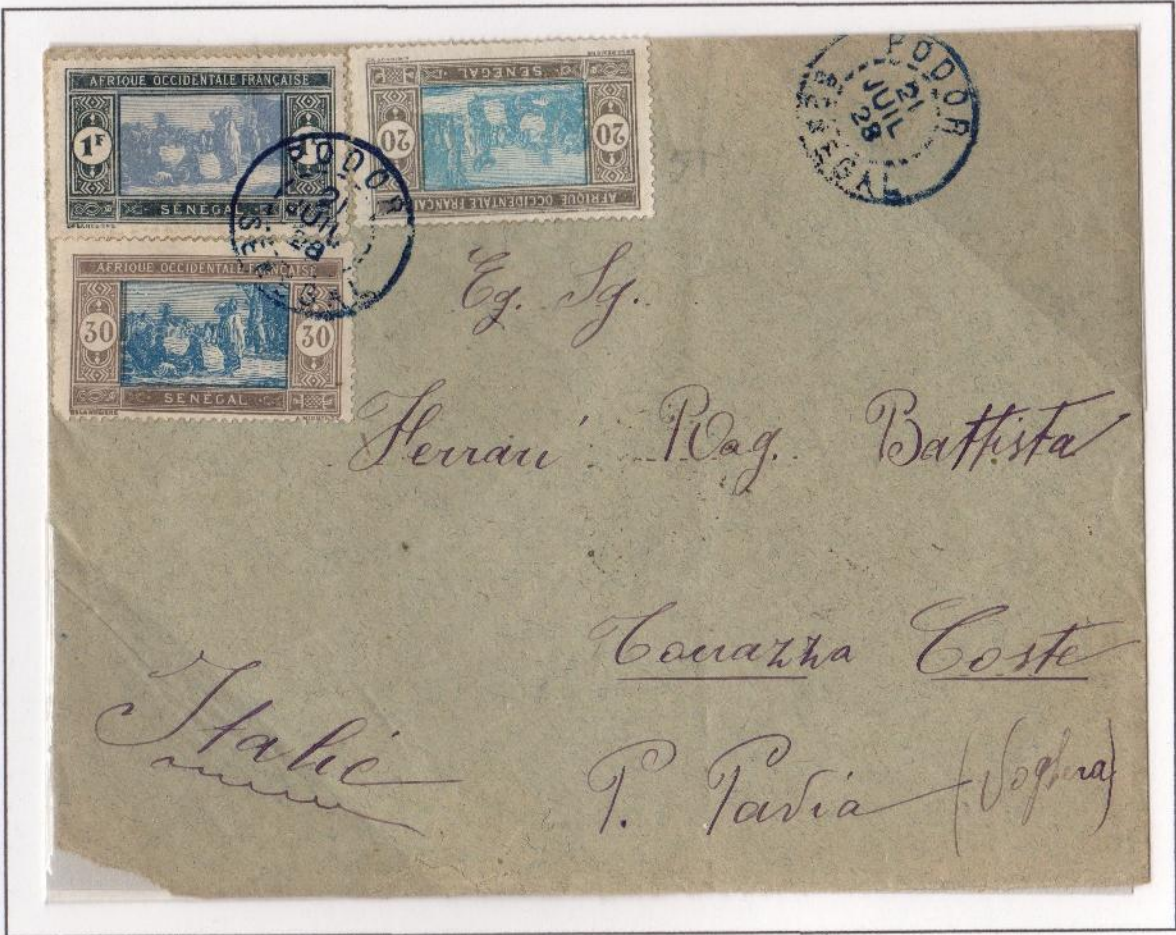 AFRIQUE OCCIDENTALE FRANÇAISE
1F
SÉNÉGAL
AFRIQUE OCCIDENTALE FRANÇAISE
20 20
SÉNÉGAL
AFRIQUE OCCIDENTALE FRANÇAISE
30 30
SÉNÉGAL
PODOR
21
JUIL
28
SENEGAL
PODOR
21
JUIL
28
SENEGAL
Eg. Sg.
Ferrari Rag. Battista
Torrazza Coste
P. Pavia (Voghera)
Italie